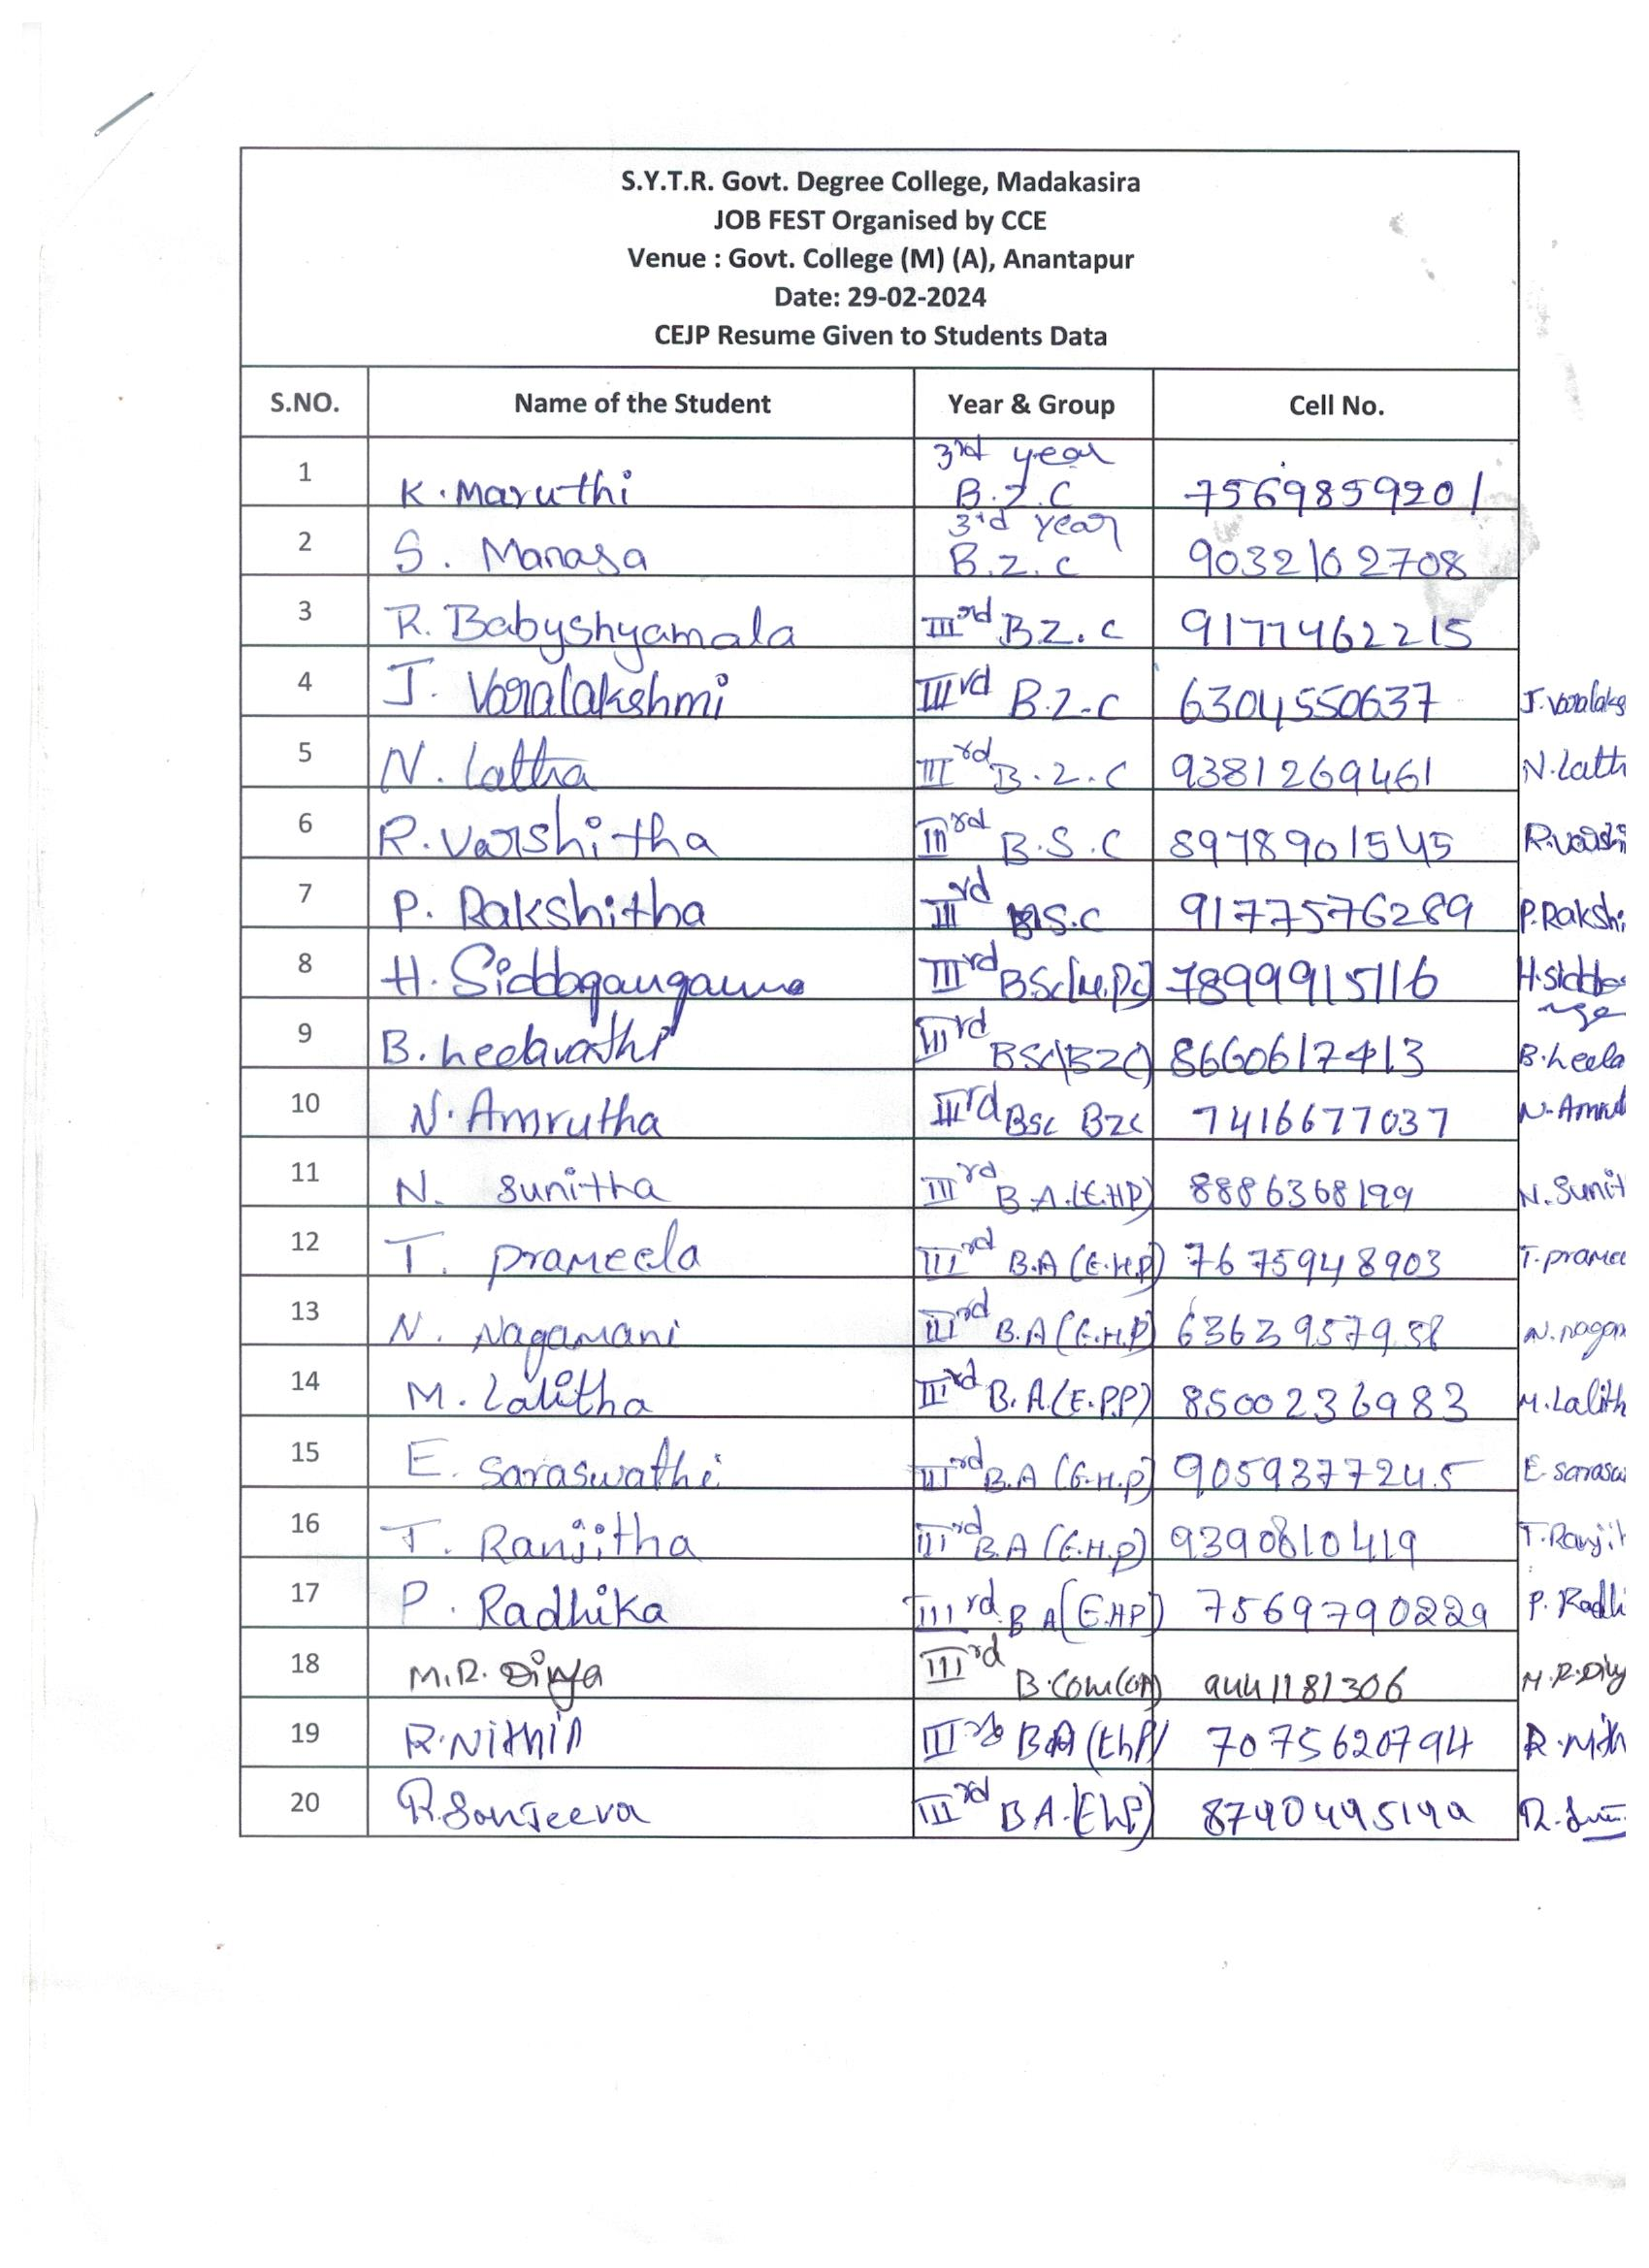 S.Y.T.R. Govt. Degree College, Madakasira
JOB FEST Organised by CCE
Venue : Govt. College (M) (A), Anantapur
Date: 29-02-2024
CEJP Resume Given to Students Data
S.NO. Name of the Student Year & Group Cell No.
1 K. Maruthi 3rd year B.Z.C 7569859201
2 S. Manasa 3rd year B.Z.C 9032162708
3 R. Babyshyamala IIIrd B.Z.C 9177462215
4 J. Varalakshmi IIIrd B.Z.C 6304550637
5 N. Latha IIIrd B.Z.C 9381269461 N.Lath
6 R. Varshitha IIIrd B.S.C 8978901545
7 P. Rakshitha IIIrd B.S.C 9177576289 P.Rakshi
8 H. Siddagangamma IIIrd BSc[M.Pc] 7899915116
9 B. Leelavathi IIIrd BSc(BZC) 8660617413 B.Leela
10 N. Amrutha IIIrd Bsc BZC 7416677037
11 N. Sunitha IIIrd B.A.(E.HP) 8886368199 N.Sunit
12 T. Prameela IIIrd B.A (E.H.P) 7675948903 T.pramee
13 N. Nagamani IIIrd B.A (E.H.P) 6363957958
14 M. Lalitha IIIrd B.A.(E.P.P) 8500236983 M.Lalith
15 E. Saraswathi IIIrd B.A (E.H.P) 9059377245
16 T. Ranjitha IIIrd B.A (E.H.P) 9390810419 T.Ranjit
17 P. Radhika IIIrd B A (E.HP) 7569790229 P. Radhi
18 M.R. Divya IIIrd B.Com(CA) 9441181306
19 R. Nithin IIIrd BA (EhP) 7075620794
20 R. Sanjeeva IIIrd B A.(EhP)